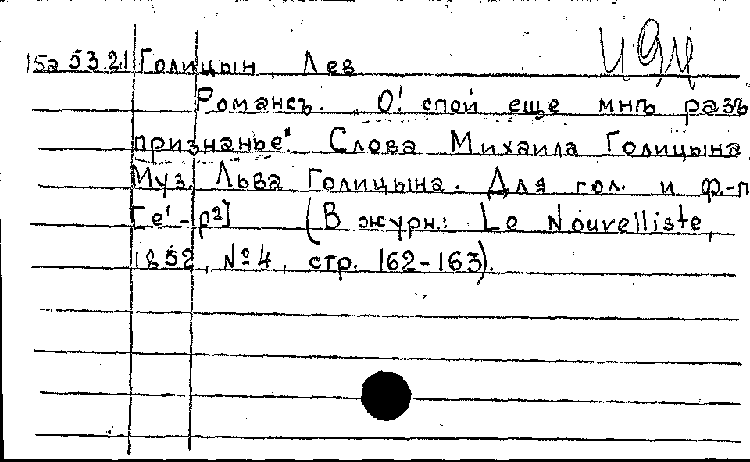 15a 53 21 Голицын Лев
Романсъ. „О! спой еще мнѣ разъ
признанье". Слова Михаила Голицына
Муз. Льва Голицына. Для гол. и ф.-п
[e¹-p²] (В журн.: Le Nouvelliste,
1852, № 4, стр. 162-163).